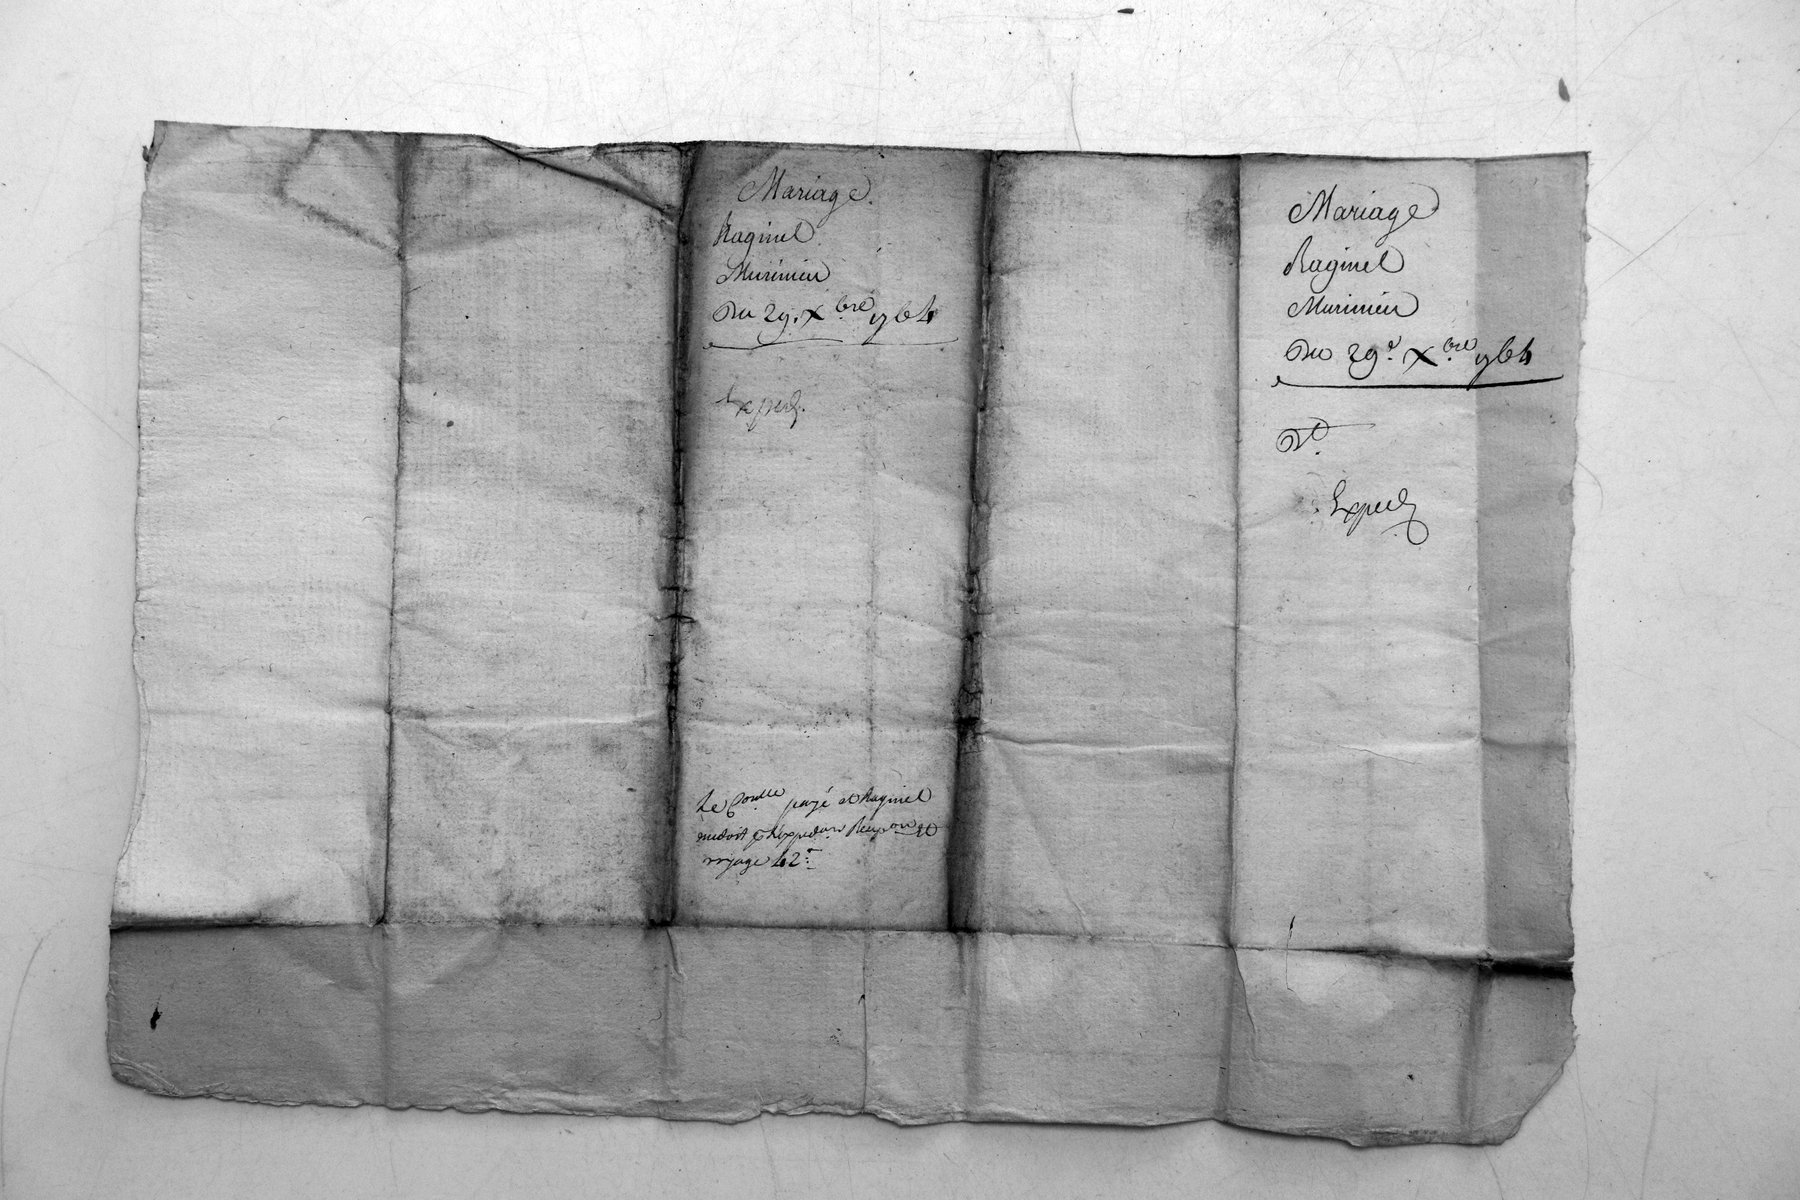 Mariage.
Raginel
Murinieu
Du 29. Xbre 1764
Expedz.
Le Conlle payé et Raginel
medoit p
voyage 42s
Mariage
Raginel
Murinieu
Du 29e Xbre 1764
Expedz